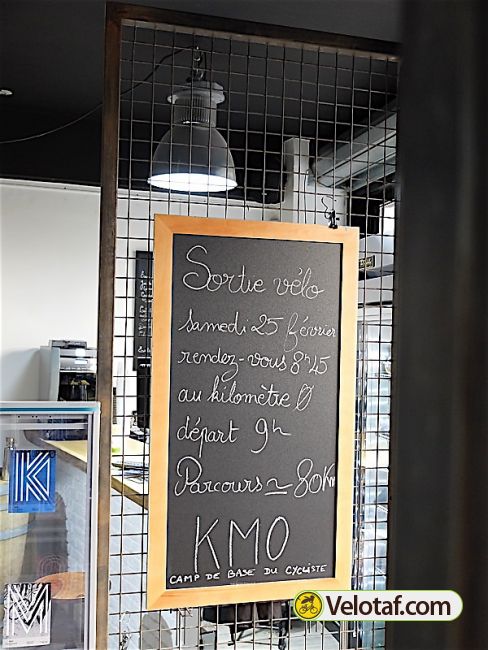 Sortie vélo
samedi 25 février
rendez-vous 8h45
au kilomètre 0
départ 9h
Parcours ≃ 80Km
KM0
CAMP DE BASE DU CYCLISTE
K
M
Velotaf.com